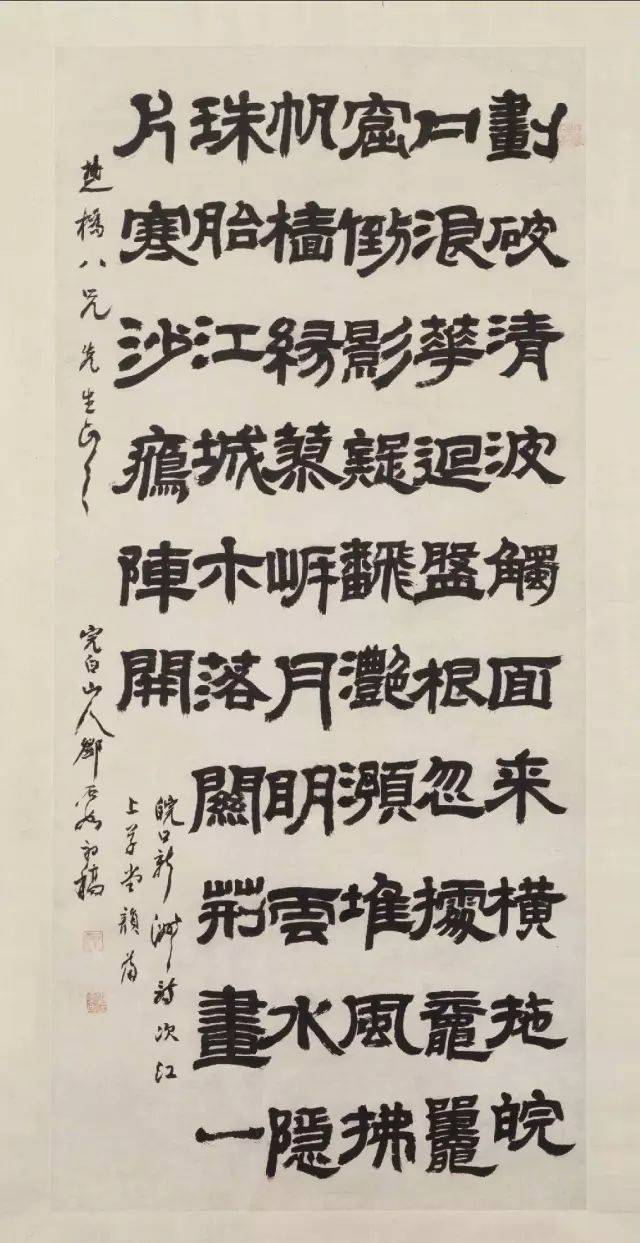 劃破清波觸面来橫拖皖
口浪華迴盤根忽據黿鼉
窟倒影疑飜灩澦堆風拂
帆檣緣蓼岸月明雲水隱
珠胎江城木落關荆畫一
片寒沙鴈陣開
皖口新洲詩次江
上草堂韻
楚橋八兄先生正之
完白山人鄧石如初稿